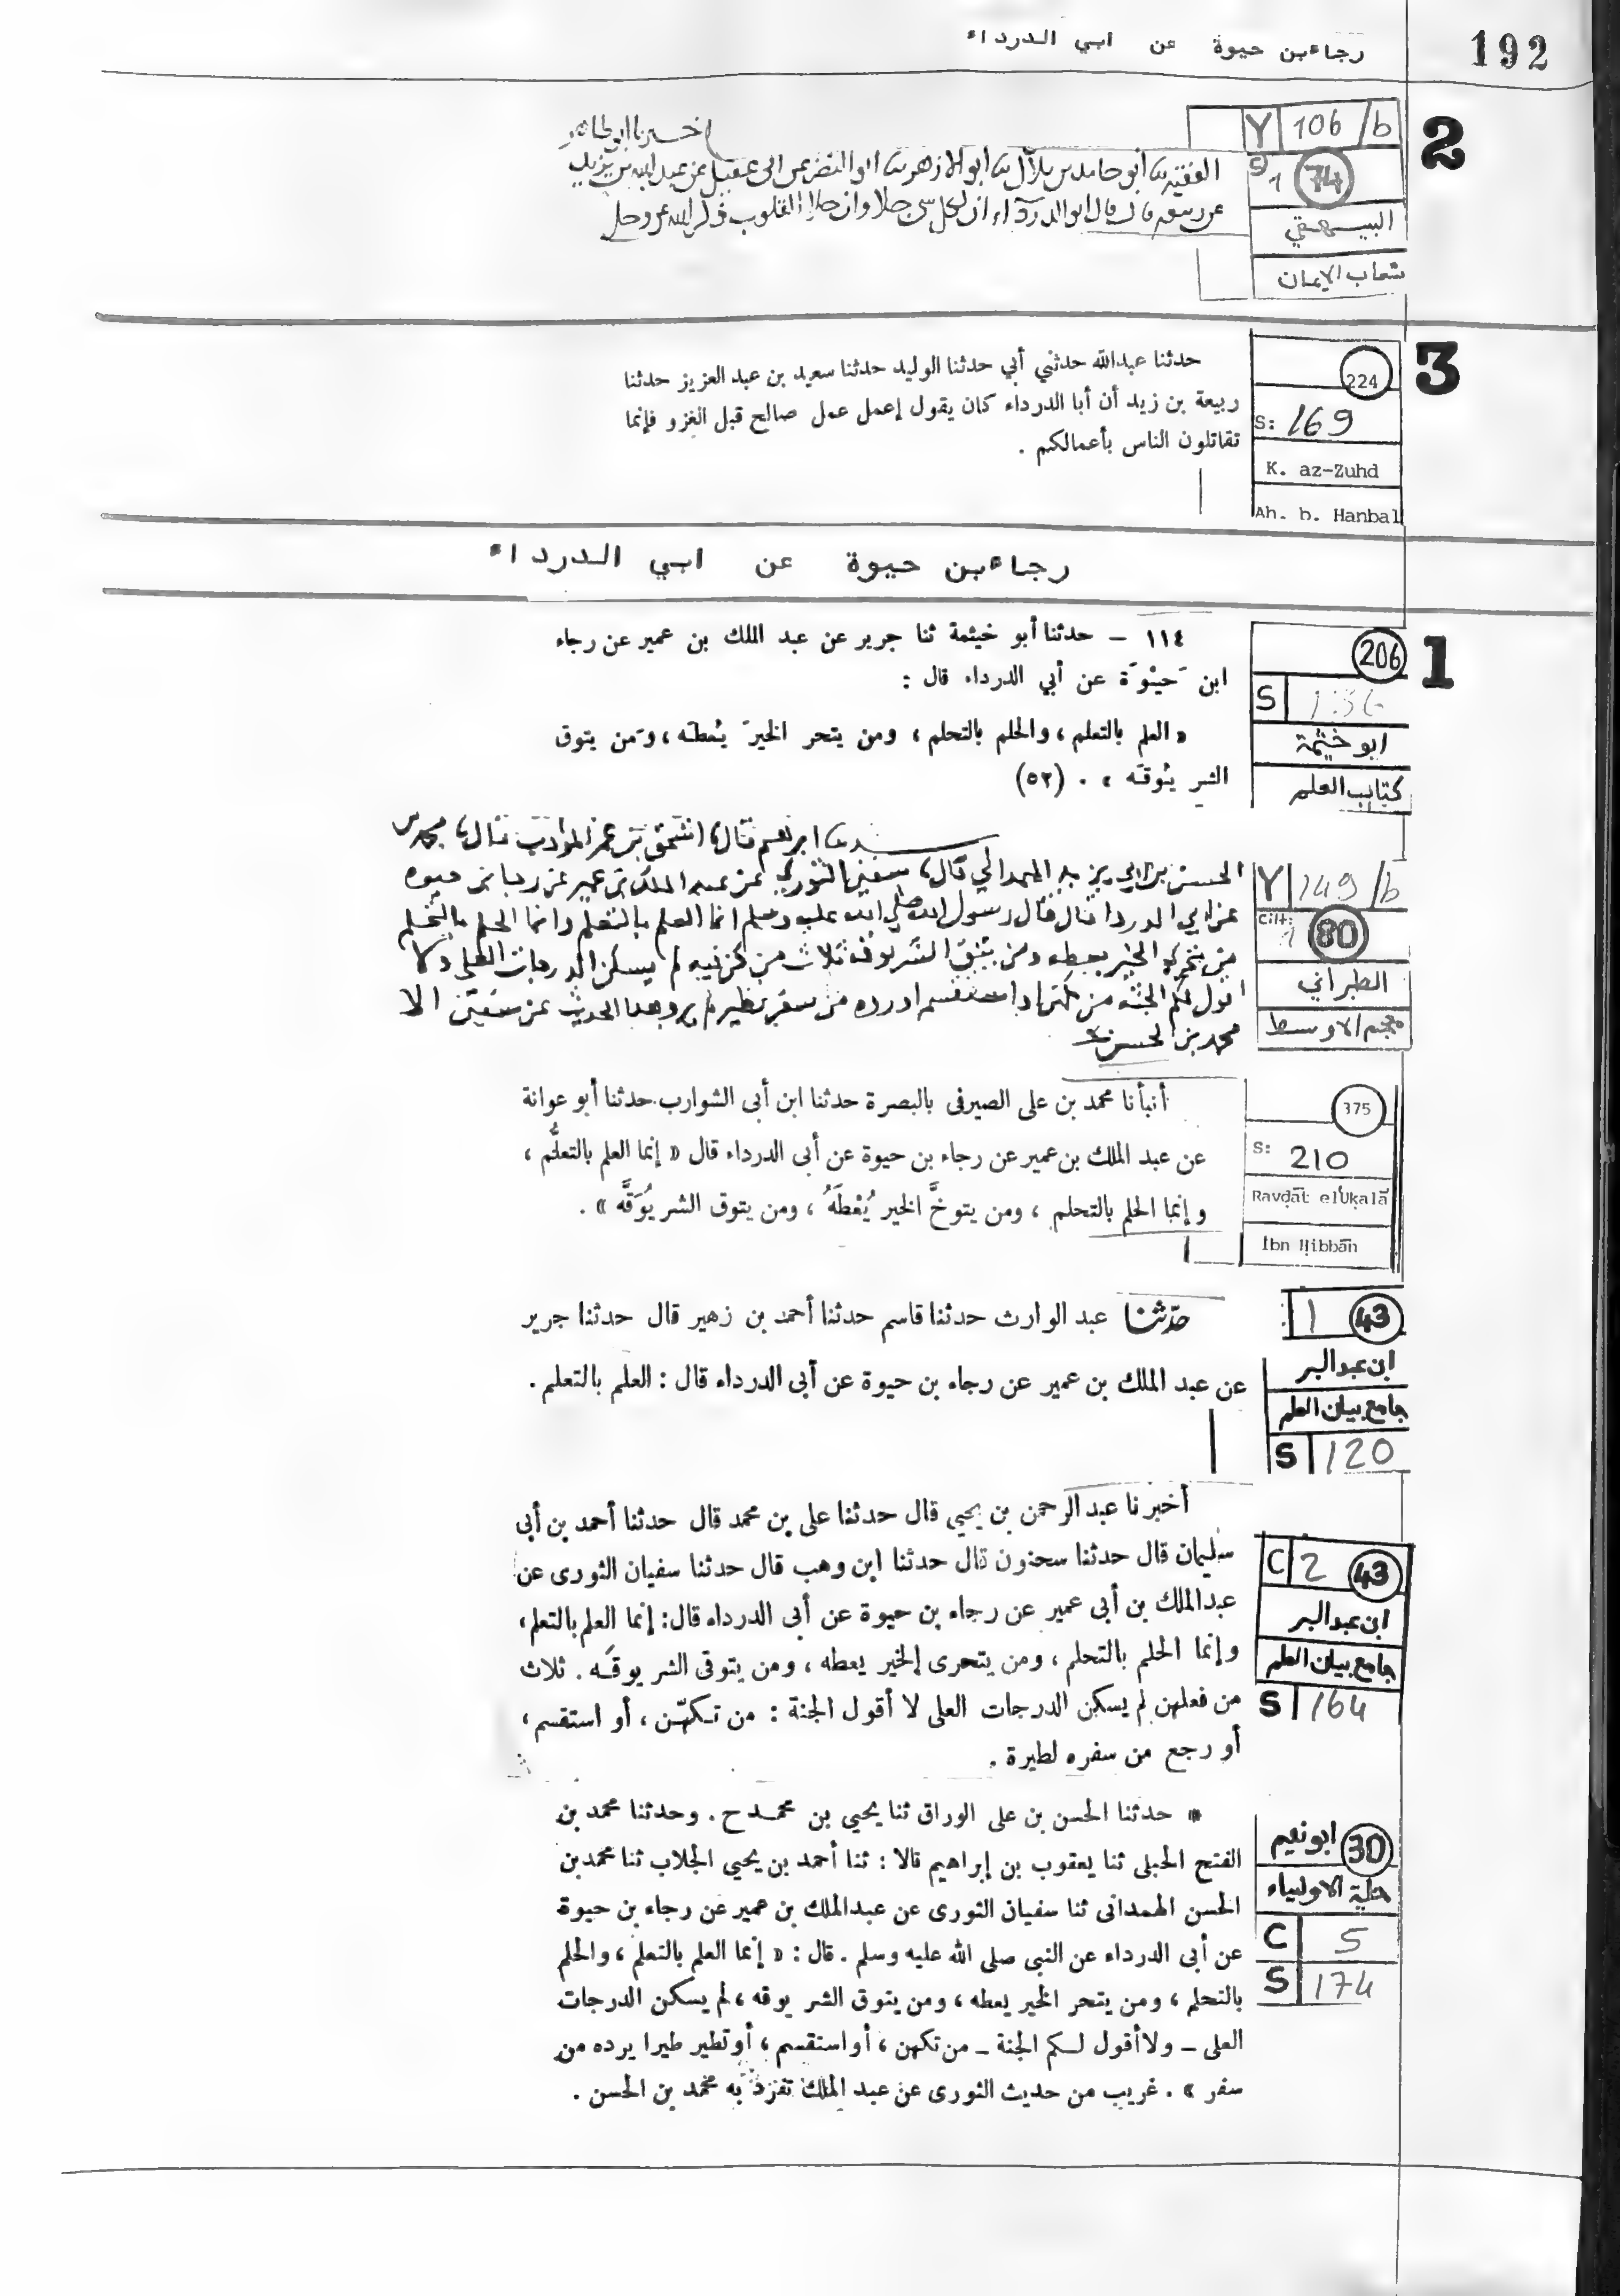 192
رجاءبن حيوة عن ابي الدرداء
2
Y 106 /b
S 1 74
البيهقي
شعاب الايمان
اخبرنا ابو طاهر
الفقيه ابو حامد بن بلال ابو الازهر ابو النضر عن ابى عقيل عن عبد الله بن يزيد
عن ربيعه قال قال ابو الدرداء ان لكل شى جلا وان جلا القلوب ذكر الله عز وجل
3
224
S: 169
K. az-Zuhd
Ah. b. Hanbal
حدثنا عبدالله حدثني أبي حدثنا الوليد حدثنا سعيد بن عبد العزيز حدثنا
ربيعة بن زيد أن أبا الدرداء كان يقول إعمل عمل صالح قبل الغزو فإنما
تقاتلون الناس بأعمالكم .
رجاءبن حيوة عن ابي الدرداء
1
206
S
ابو خيثمة
كتاب العلم
١١٤ – حدثنا أبو خيثمة ثنا جرير عن عبد الملك بن عمير عن رجاء
ابن حَيْوَة عن أبي الدرداء قال :
« العلم بالتعلم ، والحلم بالتحلم ، ومن يتحر الخيرَ يُعطَه ، ومَن يتوق
الشر يُوقَه » . (٥٢)
Y 149 /b
Cilt: 1 80
الطبراني
معجم الاوسط
ابرهيم قال اسحق بن عمر المؤدب قال محمد بن
الحسن بن ابي يزيد الهمداني قال سفين الثوري عن عبد الملك بن عمير عن رجا بن حيوه
عن ابي الدردا قال قال رسول الله صلي الله عليه وسلم انما العلم بالتعلم وانما الحلم بالتحلم
من يتحرى الخير يعطه ومن يتق الشر يوقه ثلاث من كن فيه لم يسكن الدرجات العلى ولا
اقول لكم الجنه من تكهن او استقسم او رده من سفر تطير لم يرو هذا الحديث عن سفين الا
محمد بن الحسن
375
S: 210
Ravḍāt el'Uḳalā
İbn Ḥibbān
أنبأنا محمد بن على الصيرفى بالبصرة حدثنا ابن أبى الشوارب حدثنا أبو عوانة
عن عبد الملك بن عمير عن رجاء بن حيوة عن أبى الدرداء قال « إنما العلم بالتعلُّم ،
وإنما الحلم بالتحلم ، ومن يتوخَّ الخير يُعْطَهُ ، ومن يتوق الشر يُوَقَّه » .
1 43
ابن عبدالبر
جامع بيان العلم
S 120
حدّثنا عبد الوارث حدثنا قاسم حدثنا أحمد بن زهير قال حدثنا جرير
عن عبد الملك بن عمير عن رجاء بن حيوة عن أبى الدرداء قال : العلم بالتعلم .
C 2 43
ابن عبدالبر
جامع بيان العلم
S 164
أخبرنا عبد الرحمن بن يحيى قال حدثنا على بن محمد قال حدثنا أحمد بن أبى
سليمان قال حدثنا سحنون قال حدثنا ابن وهب قال حدثنا سفيان الثورى عن
عبدالملك بن أبى عمير عن رجاء بن حيوة عن أبى الدرداء قال: إنما العلم بالتعلم،
وإنما الحلم بالتحلم ، ومن يتحرى الخير يعطه ، ومن يتوقى الشر يوقَه . ثلاث
من فعلهن لم يسكن الدرجات العلى لا أقول الجنة : من تكهّن ، أو استقسم ،
أو رجع من سفره لطيرة .
ابونعيم 30
حلية الاولياء
C 5
S 174
* حدثنا الحسن بن على الوراق ثنا يحيى بن محمد ح . وحدثنا محمد بن
الفتح الحبلى ثنا يعقوب بن إبراهيم قالا : ثنا أحمد بن يحيى الجلاب ثنا محمد بن
الحسن الهمدانى ثنا سفيان الثورى عن عبدالملك بن عمير عن رجاء بن حيوة
عن أبى الدرداء عن النبى صلى الله عليه وسلم . قال : « إنما العلم بالتعلم ، والحلم
بالتحلم ، ومن يتحر الخير يعطه ، ومن يتوق الشر يوقه ، لم يسكن الدرجات
العلى – ولا أقول لكم الجنة – من تكهن ، أو استقسم ، أو تطير طيرا يرده من
سفر » . غريب من حديث الثورى عن عبد الملك تفرد به محمد بن الحسن .